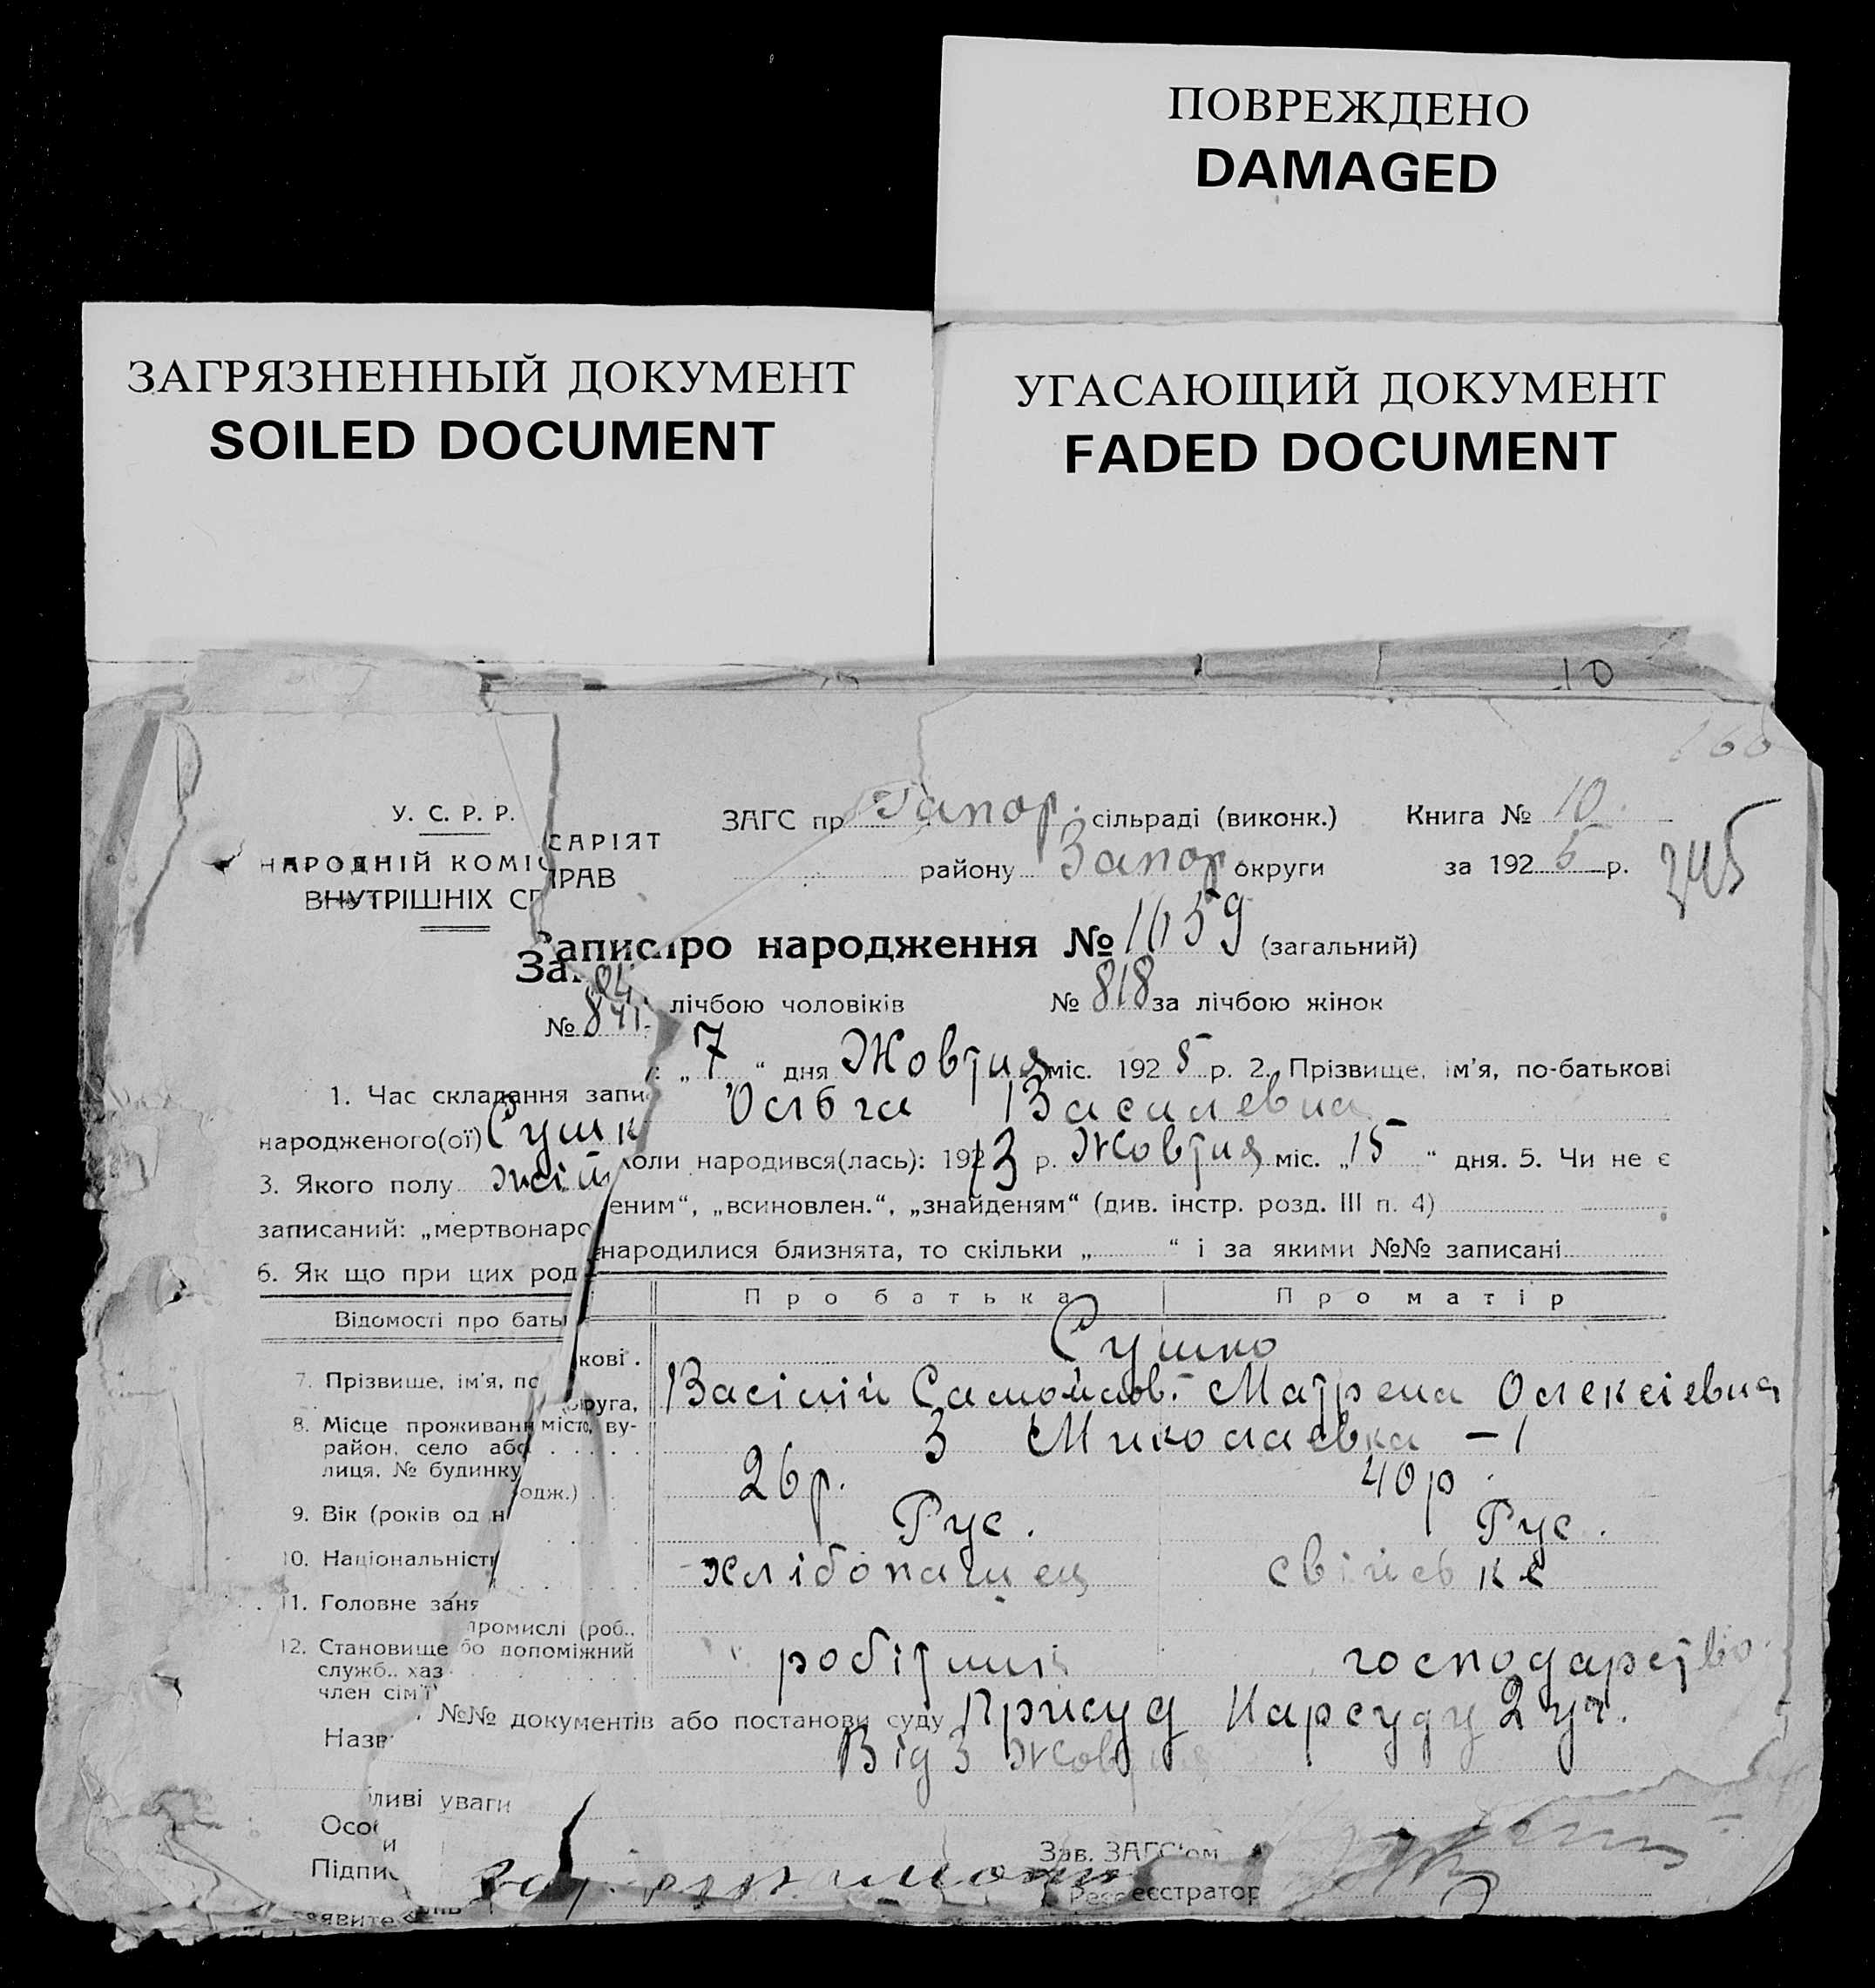 ПОВРЕЖДЕНО
DAMAGED
ЗАГРЯЗНЕННЫЙ ДОКУМЕНТ
SOILED DOCUMENT
УГАСАЮЩИЙ ДОКУМЕНТ
FADED DOCUMENT
10
У. С. Р. Р.
НАРОДНІЙ КОМІСАРІЯТ
ВНУТРІШНІХ СПРАВ
ЗАГС пр Запор. сільраді (виконк.)
району Запор округи
Книга № 10
за 1925 р.
245
Запис про народження № 1659 (загальний)
№ 841 лічбою чоловіків № 818 за лічбою жінок
1. Час складання запи : „7“ дня Жовтня міс. 1925 р. 2. Прізвище, ім'я, по-батькові
народженого(ої) Сушк Ольга Василевна
3. Якого полу жін коли народився(лась): 1923 р. Жовтня міс. „15“ дня. 5. Чи не є
записаний: „мертвонаро еним“, „всиновлен.“, „знайденям“ (див. інстр. розд. III п. 4)
6. Як що при цих род народилися близнята, то скільки „ “ і за якими №№ записані
Відомості про бать Про батька Про матір
Сушко
7. Прізвище, ім'я, по кові. Васілій Самойлов. Матрена Олексіевна
8. Місце проживанн округа,
район, село або місто, ву-
лиця, № будинку
З Миколаевка - 1
9. Вік (років од н одж.) 26 р. 40 р.
10. Національність Рус. Рус.
11. Головне заня хлібопашец свійське
12. Становище промислі (роб.,
служб., хаз бо допоміжний
член сім'ї робітник господарство
Назв №№ документів або постанови суду Присуд Нарсуду 2 уч.
Від 3 Жовтня
Особливі уваги
Підпи и
Зав. ЗАГС'ом
Реєстратор
заявите